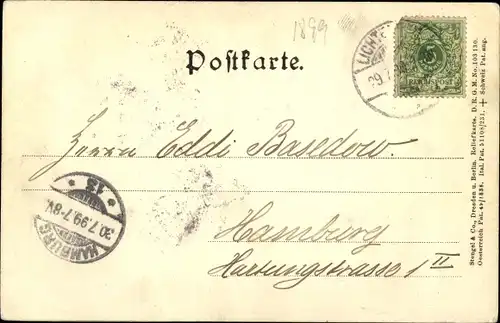 1899
Postkarte.
LICHTE
29.7.
REICHSPOST
Herrn Eddi Basedow.
HAMBURG
30.7.99.7-8V.
* 13 *
Hamburg
Hartungstrasse 1 II
Stengel & Co., Dresden u. Berlin. Reliefkarte. D. R. G. M. No. 103130.
Oesterreich Pat. 49/1838. Ital. Pat. 51108/231. + Schweiz Pat. ang.